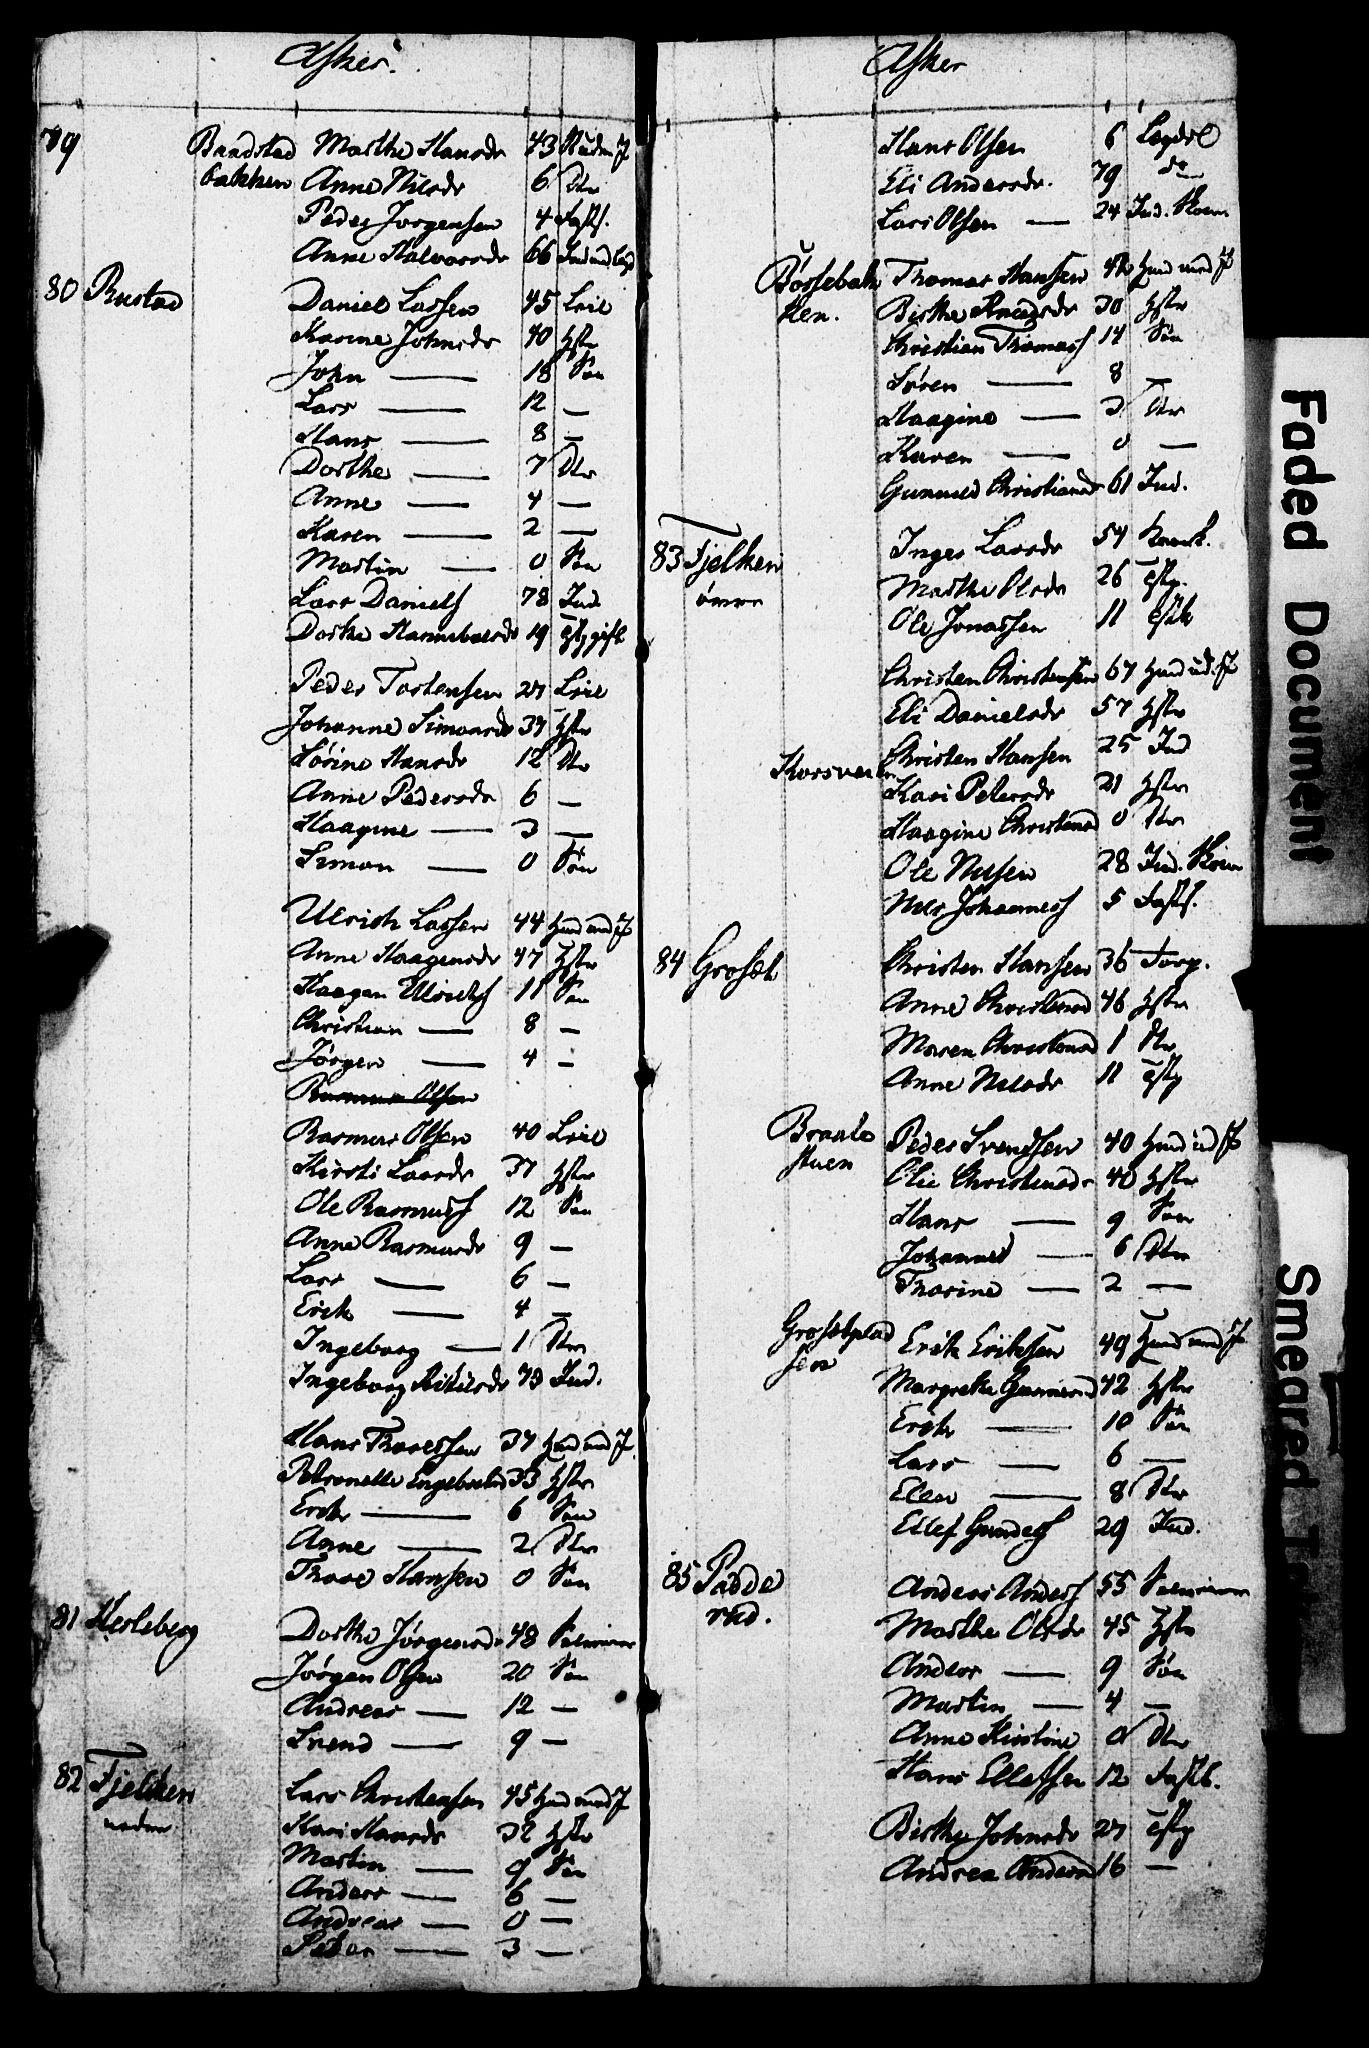 Asker.
79 Baadstad Marthe Hansdr 43
bakken Anne Nilsdr 6 Dtr
Peder Jørgensen 4 Fosts.
Anne Halvorsdr 66
80 Rustad Daniel Larsen 45 Leil
Karine Johnsdr 40 Hstr
John — 18 Søn
Lars — 12 —
Hans — 8 —
Dorthe — 7 Dtr
Anne — 4 —
Karen — 2 —
Martin — 0 Søn
Lars Daniels 78 Ind
Dorthe 19
Peder Torstensen 27 Leil
Johanne Simonsdr 37 Hstr
Sørine Hansdr 12 Dtr
Anne Pedersdr 6 —
Haagine — 3 —
Simon — 0 Søn
Ulrich Larsen 44 Husmd med J
Anne Haagensdr 47 Hstr
Haagen Ulrichs 11 Søn
Christian — 8 —
Jørgen — 4 —
Rasmus Olsen
Rasmus Olsen 40 Leil
Kirsti Larsdr 37 Hstr
Ole Rasmuss 12 Søn
Anne Rasmusdr 9 —
Lars — 6 —
Erik — 4 —
Ingeborg — 1 Dtr
Ingeborg 73 Ind.
Hans Thoresen 37 Husmd med J
Petronelle Engebretsd 33 Hstr
Erik — 6 Søn
Anne — 2 Dtr
Thore Hansen 0 Søn
81 Hersleberg Dorthe Jørgensdr 48
Jørgen Olsen 20 Søn
Andreas — 12 —
Svend — 9 —
82 Fjelken Lars Christensen 45 Husmd med J
neden Kari Hansdr 32 Hstr
Martin — 9 Søn
Anders — 6 —
Andreas — 0 —
Peter — 3 —
Asker
Hans Olsen 6 Lægdsl
Eli Andersdr. 79 do
Lars Olsen — 24 Ind. Skom
Børsebak Thomas Hansen Husmd med J
ken. Birthe Knudsdr 30 Hstr
Christian Thomass 14 Søn
Søren — 8 —
Haagine — 3 Dtr
Karen — 0 —
Gunnild Christiansd 61 Ind.
83 Fjelken Inger Larsdr 54
øvre Marthe Olsdr 26 Tjstp.
Ole Jonassen 11
Christen Christensen 67 Husmd ud. J
Eli Danielsdr 57 Hstr
Korsveien Christen Hansen 25 Ind
Kari Pedersdr 21 Hstr
Haagine Christensd 0 Dtr
Ole Nilsen 28 Ind. Skom
Nils Johanness 5 Fosts.
84 Groset Christen Hansen 36 Forp.
Anne Christensd 46 Hstr
Maren Christensd 1 Dtr
Anne Nilsdr 11 Tjstp
Braate Peder Svendsen 40 Husmd ud J
stuen Olie Christensdr 40 Hstr
Hans — 9 Søn
Johannes — 6 Dtr
Thorine — 2 —
Grosetplad Erik Eriksen 49 Husmd med J
sen Margrethe Gunnersd 42 Hstr
Erik — 10 Søn
Lars — 6 —
Elen — 8 Dtr
Ellef 29 Ind.
85 Padde Anders Anders 55
rud. Marthe Olsdr 45 Hstr
Anders — 9 Søn
Martin — 4 —
Anne Kirstine 0 Dtr
Hans Ellefsen 12 Fostb.
Birthe Johnsdr 27 Tjstp
Andrea Andersd 16 —
Faded Document
Smeared